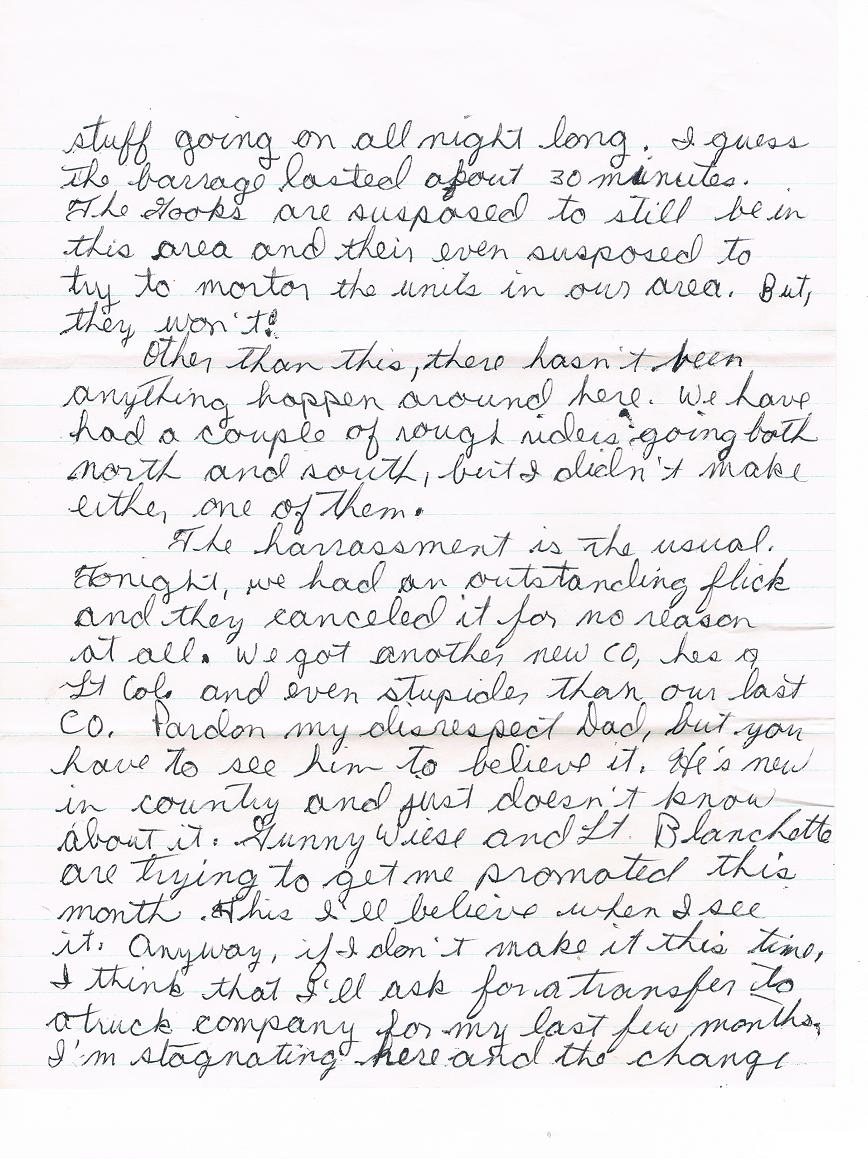 stuff going on all night long. I guess
the barrage lasted about 30 minutes.
The Gooks are susposed to still be in
this area and their even susposed to
try to mortor the units in our area. But,
they won't!
Other than this, there hasn't been
anything happen around here. We have
had a couple of rough riders going both
north and south, but I didn't make
either one of them.
The harrassment is the usual.
Tonight, we had an outstanding flick
and they canceled it for no reason
at all. We got another new CO, hes a
Lt Col. and even stupider than our last
CO. Pardon my disrespect Dad, but you
have to see him to believe it. He's new
in country and just doesn't know
about it. Gunny Wiese and Lt. Blanchette
are trying to get me promoted this
month. This I'll believe when I see
it. Anyway, if I don't make it this time,
I think that I'll ask for a transfer to
a truck company for my last few months.
I'm stagnating here and the change